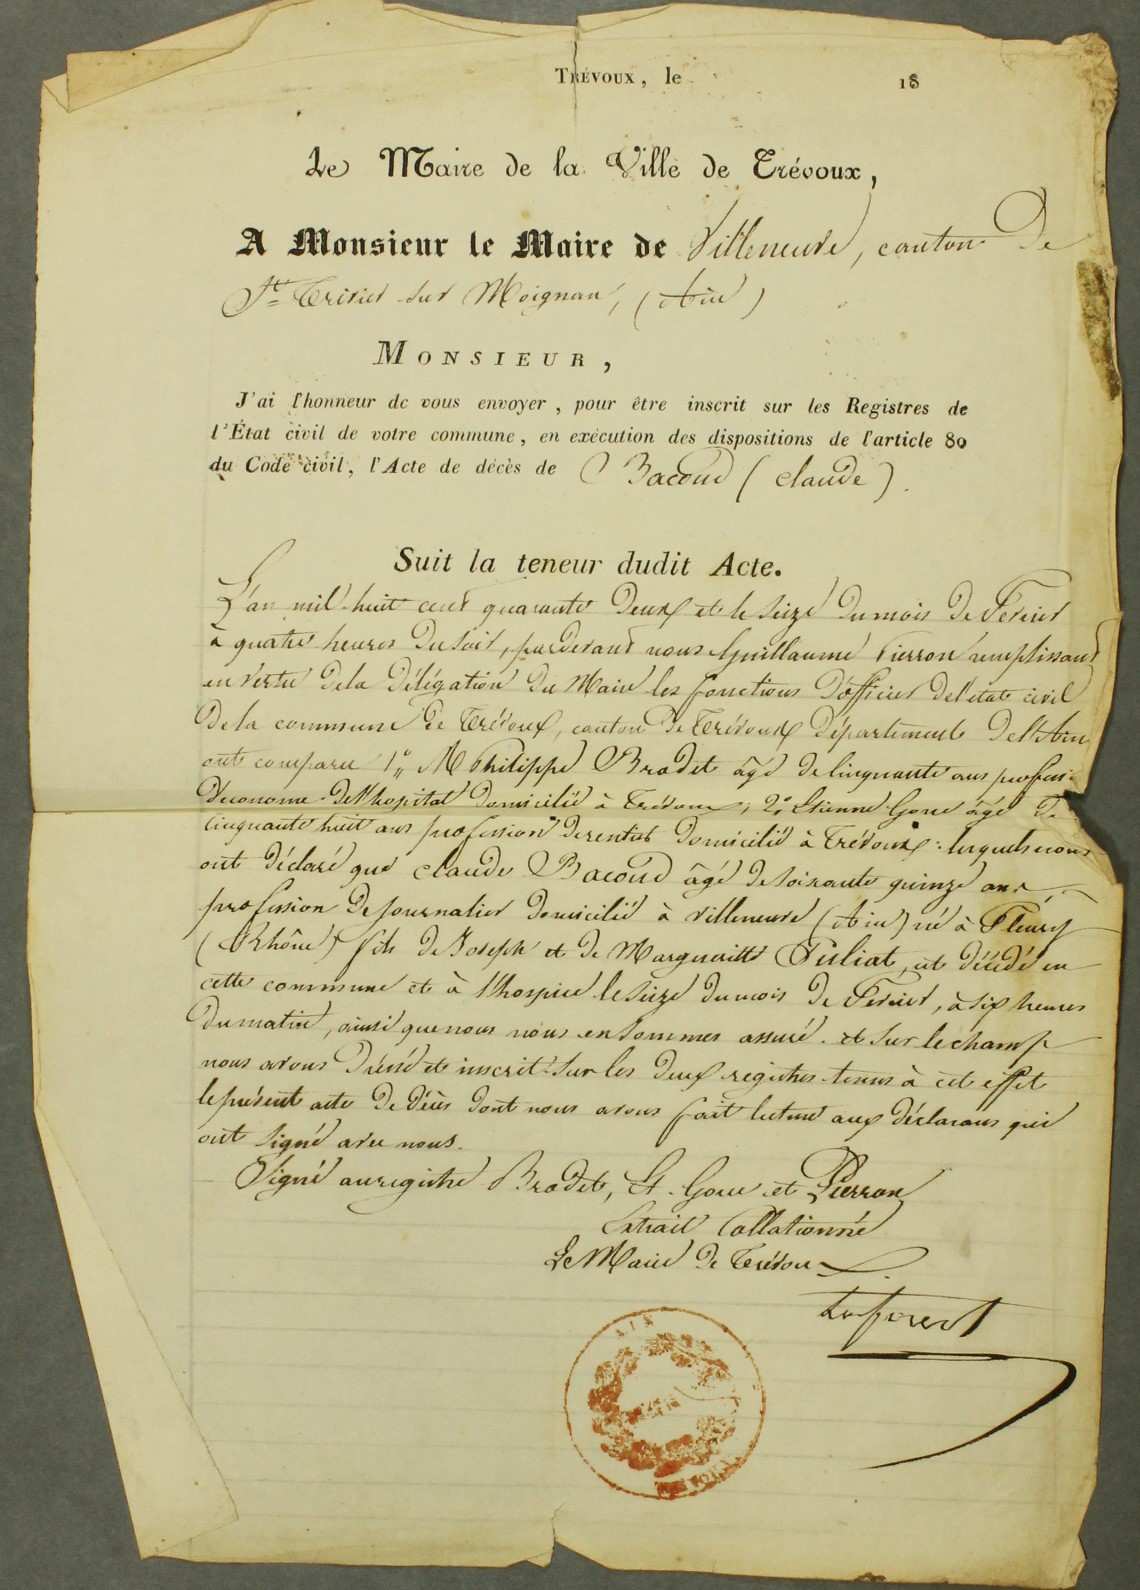 TRÉVOUX, le 18
Le Maire de la Ville de Trévoux,
A Monsieur le Maire de Villeneuve, canton De
St. Trivier sur Moignan, (Ain)
MONSIEUR,
J'ai l'honneur de vous envoyer, pour être inscrit sur les Registres de
l'État civil de votre commune, en exécution des dispositions de l'article 80
du Code civil, l'Acte de décès de Bacoud (Claude).
Suit la teneur dudit Acte.
L'an mil huit cent quarante Deux et le Seize Du mois De Fevrier
à quatre heures Du Soir, par Devant nous Guillaume Pierron remplissant
en Vertu De la Délégation Du Maire les fonctions D'officier De l'état civil
De la commune De Trévoux, canton De Trévoux Département De l'Ain
ont comparu 1° M Philippe Brodet âgé De Cinquante ans profession
D'econome De l'hopital Domicilié à Trévoux, 2° Etienne Goure âgé De
Cinquante huit ans profession De rentier Domicilié à Trévoux: lesquels nous
ont Déclaré que Claude Bacoud âgé De Soixante quinze ans
profession De Journalier Domicilié à Villeneuve (Ain) né à Fleury
(Rhône) fils De Joseph et De Margueritte Puliat, est Décédé en
cette commune et à l'hospice le Seize Du mois De Fevrier, à Six heures
Du matin, ainsi que nous nous en Sommes assuré. et Sur le champ
nous avons Dressé et inscrit Sur les Deux registres tenus à cet effet
le présent acte De Décès Dont nous avons fait lecture aux Déclarans qui
ont Signé avec nous.
Signé au registre Brodet, Et. Goure et Pierron
Extrait Collationné
Le Maire De Trévoux
AIN